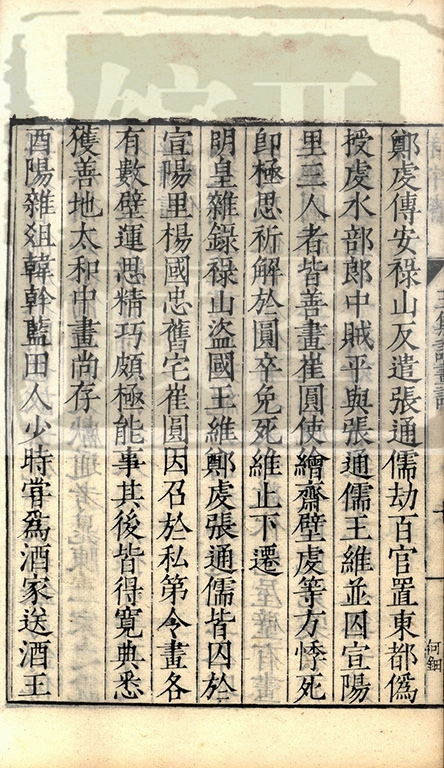 鄭虔傳安祿山反遣張通儒劫百官置東都僞
授虔水部郎中賊平與張通儒王維並囚宣陽
里三人者皆善畫崔圓使繪齋壁虔等方悸死
卽極思祈解於圓卒免死維止下遷
明皇雜錄祿山盜國王維鄭虔張通儒皆囚於
宣陽里楊國忠舊宅崔圓因召於私第令畫各
有數壁運思精巧頗極能事其後皆得寬典悉
獲善地太和中畫尚存
酉陽雜俎韓幹藍田人少時嘗爲酒家送酒王
何鈿